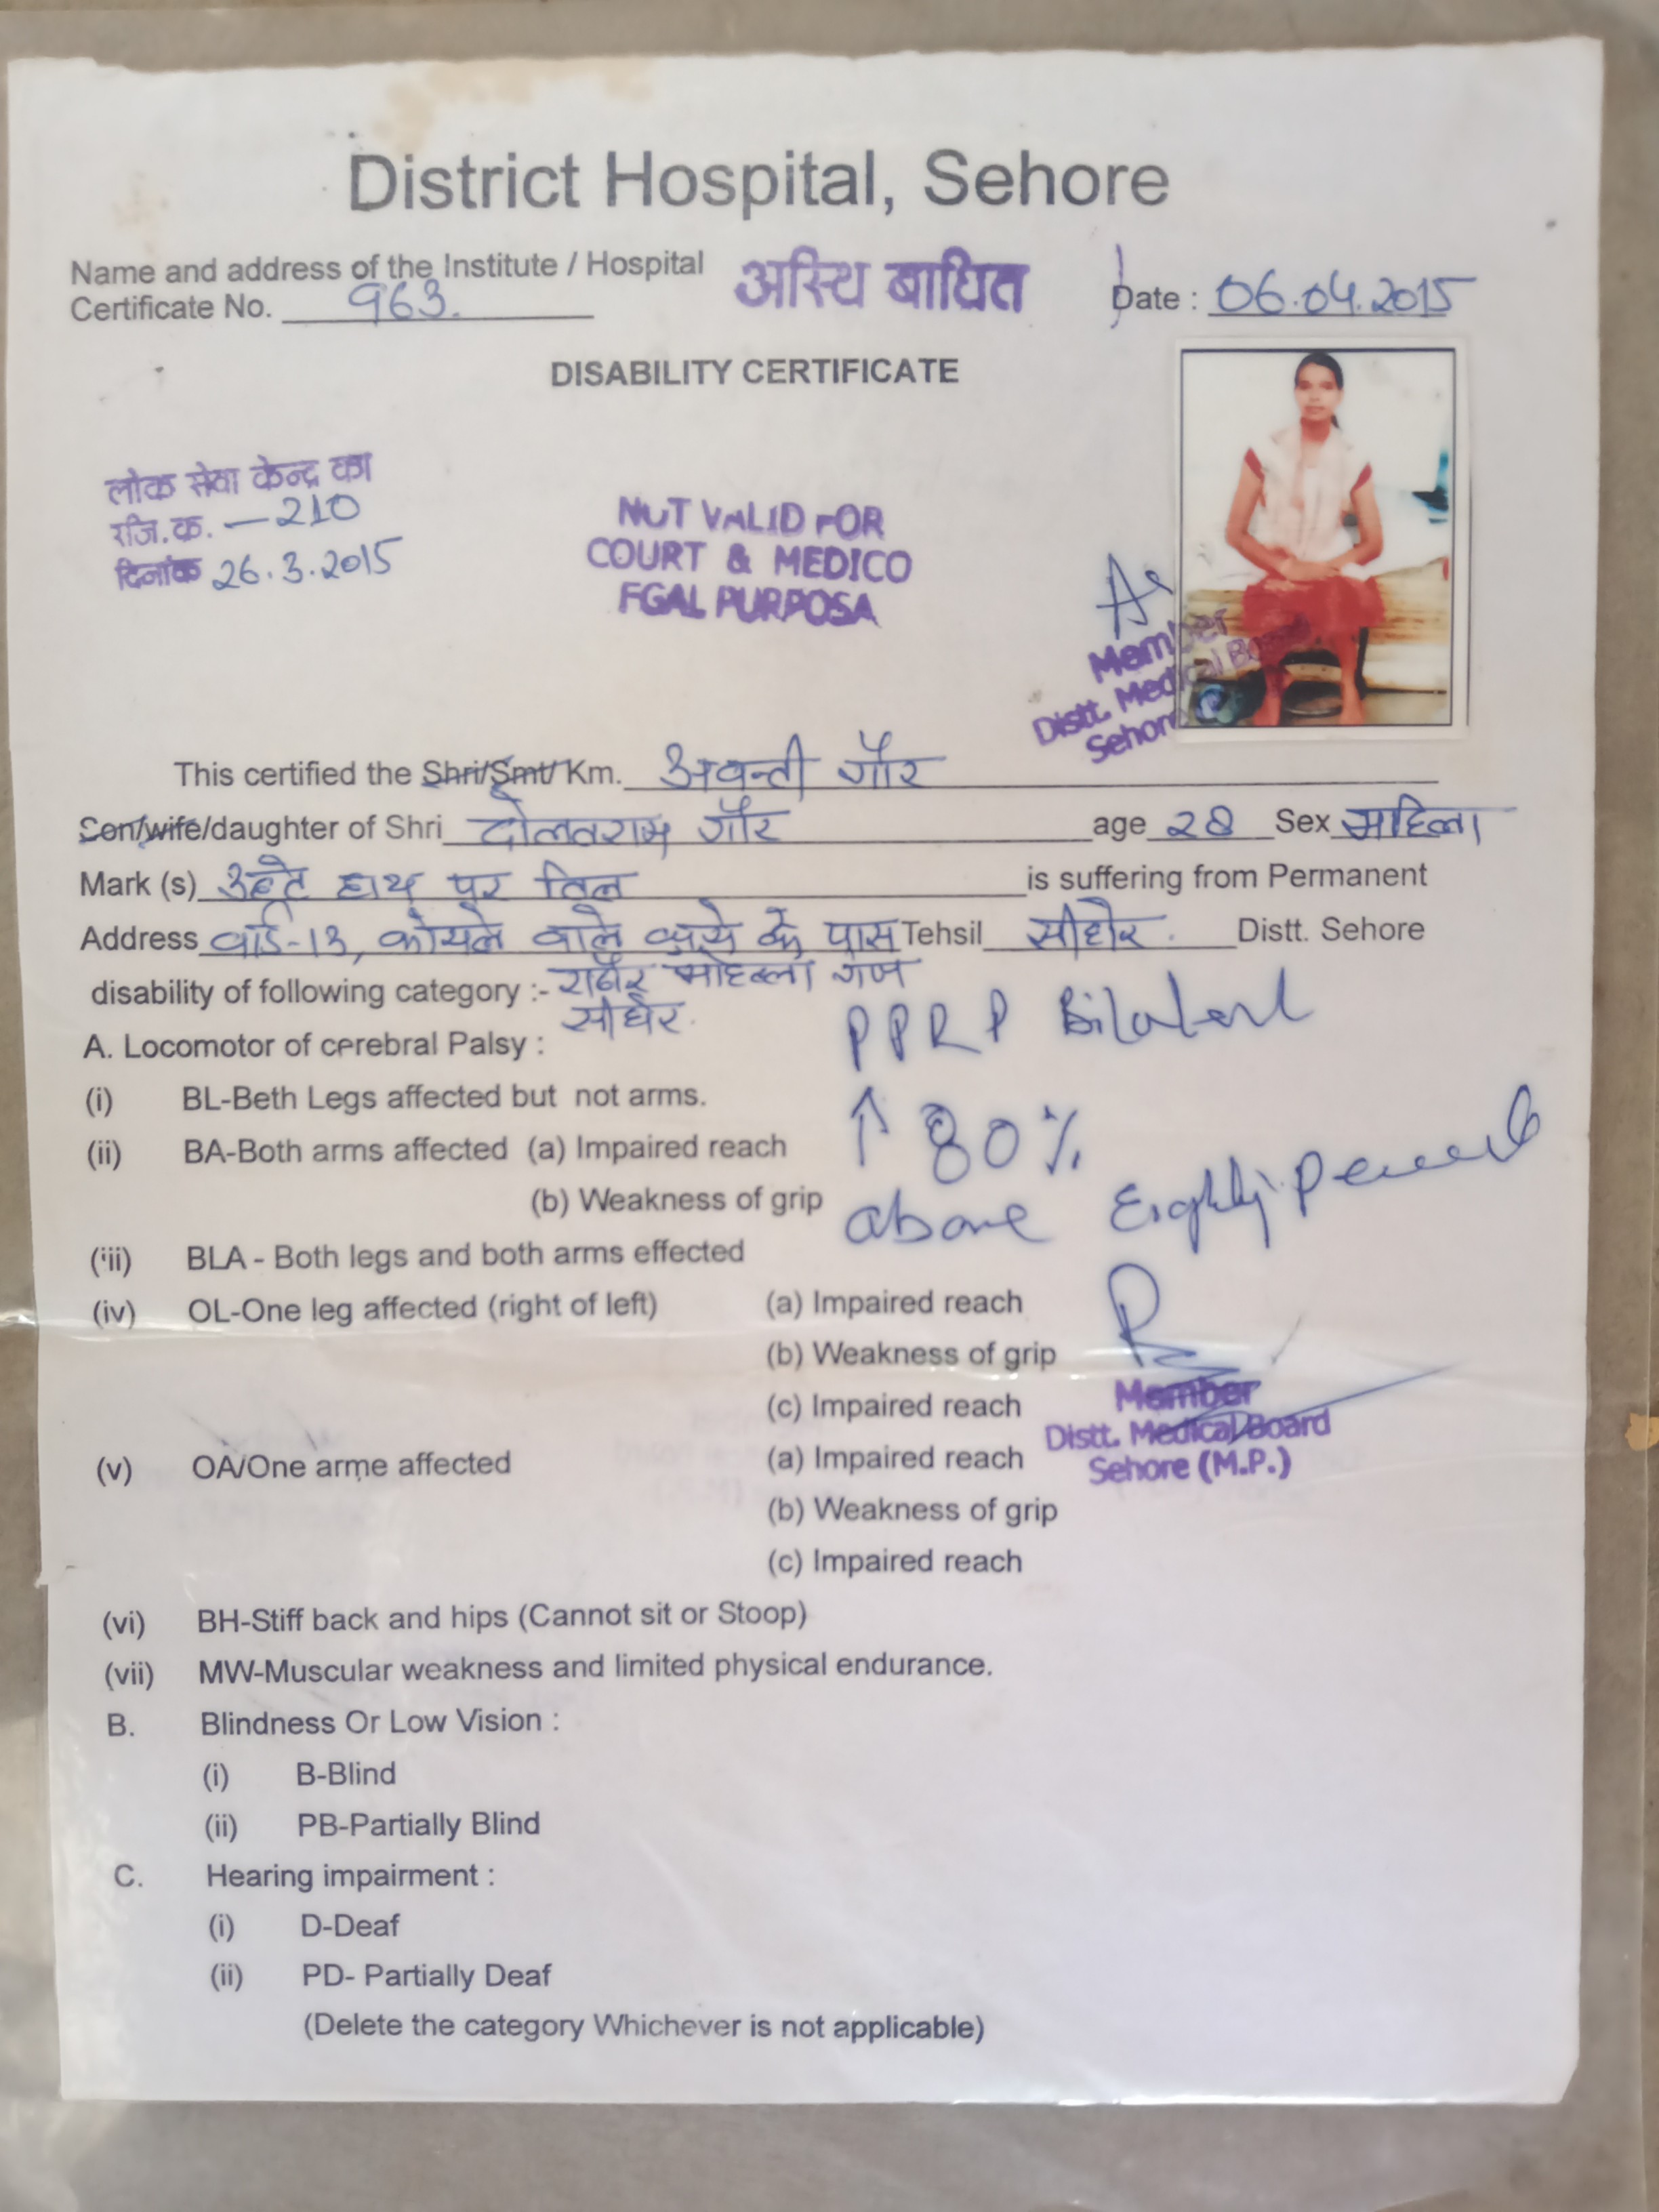 District Hospital, Sehore
Name and address of the Institute / Hospital
अस्थि बाधित
Certificate No. 963.
Date : 06.04.2015
DISABILITY CERTIFICATE
लोक सेवा केन्द्र का
रजि.क्र. — 210
दिनांक 26.3.2015
NOT VALID FOR
COURT & MEDICO
FGAL PURPOSA
Member
Distt. Medical Board
Sehore
This certified the Shri/Smt/ Km. अवन्ती गौर
Son/wife/daughter of Shri दोलतराम गौर age 28 Sex महिला
Mark (s) उल्टे हाथ पर तिल is suffering from Permanent
Address वार्ड-13, कोयले वाले कुये के पास Tehsil सीहोर. Distt. Sehore
राठौर मोहल्ला गंज
disability of following category :-
सीहोर.
A. Locomotor of cerebral Palsy :
PPRP Bilateral
(i) BL-Beth Legs affected but not arms.
↑ 80%
(ii) BA-Both arms affected (a) Impaired reach
(b) Weakness of grip
above Eighty percent
(iii) BLA - Both legs and both arms effected
(iv) OL-One leg affected (right of left) (a) Impaired reach
(b) Weakness of grip
(c) Impaired reach
Member
Distt. Medical Board
Sehore (M.P.)
(v) OA/One arme affected (a) Impaired reach
(b) Weakness of grip
(c) Impaired reach
(vi) BH-Stiff back and hips (Cannot sit or Stoop)
(vii) MW-Muscular weakness and limited physical endurance.
B. Blindness Or Low Vision :
(i) B-Blind
(ii) PB-Partially Blind
C. Hearing impairment :
(i) D-Deaf
(ii) PD- Partially Deaf
(Delete the category Whichever is not applicable)